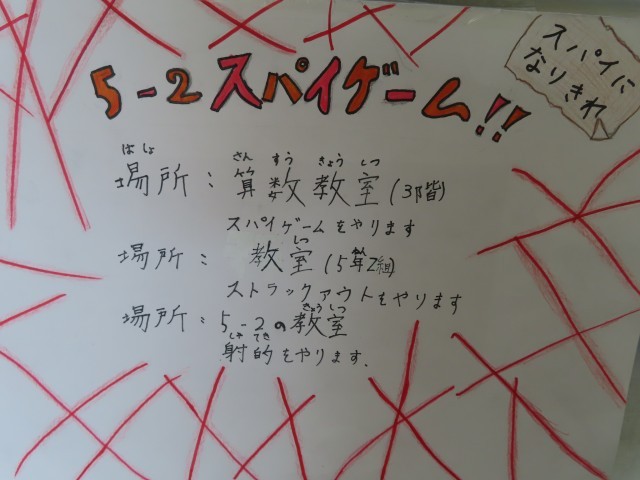 5-2スパイゲーム!!
スパイに
なりきれ
ばしょ
場所:算数教室(3階)
さんすうきょうしつ
スパイゲームをやります
場所:教室(5年2組)
しつ
ストラックアウトをやります
場所:5-2の教室
きょうしつ
しゃてき
射的をやります.